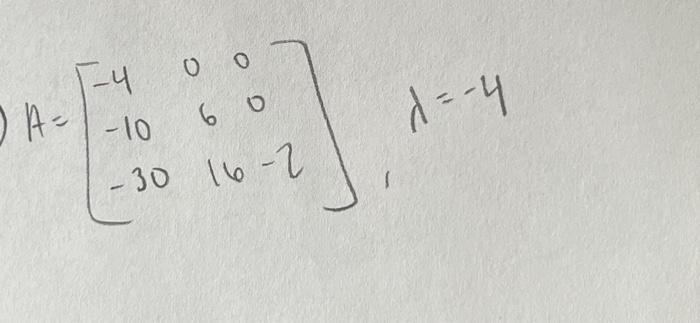 ) A = [-4 0 0
-10 6 0
-30 16 -2], λ = -4